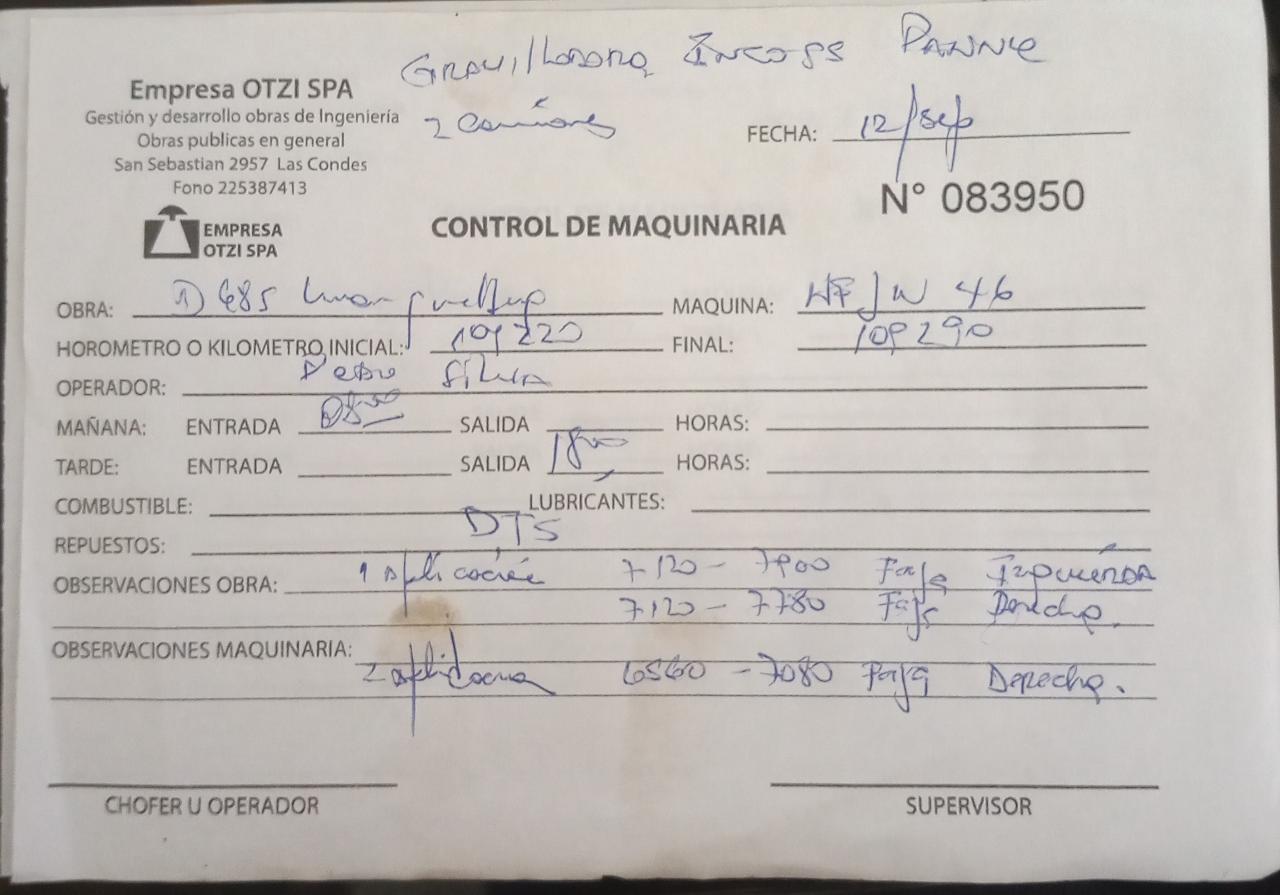 Gravilladora Incoss Panne
Empresa OTZI SPA
Gestión y desarrollo obras de Ingeniería
2 Camiones
Obras publicas en general
FECHA: 12/sep
San Sebastian 2957 Las Condes
Fono 225387413
N° 083950
EMPRESA
OTZI SPA
CONTROL DE MAQUINARIA
OBRA: D 685
MAQUINA: HFJW 46
HOROMETRO O KILOMETRO INICIAL: 109220
FINAL: 109290
OPERADOR: Pedro Silva
MAÑANA: ENTRADA 08:00 SALIDA HORAS:
TARDE: ENTRADA SALIDA 18:00 HORAS:
COMBUSTIBLE: LUBRICANTES:
REPUESTOS: DTS
OBSERVACIONES OBRA: 1 aplicación 7120 - 7900 Faja Izquierda
7120 - 7780 Faja Derecha.
OBSERVACIONES MAQUINARIA:
2 aplicación 6560 - 7080 Faja Derecha.
CHOFER U OPERADOR
SUPERVISOR